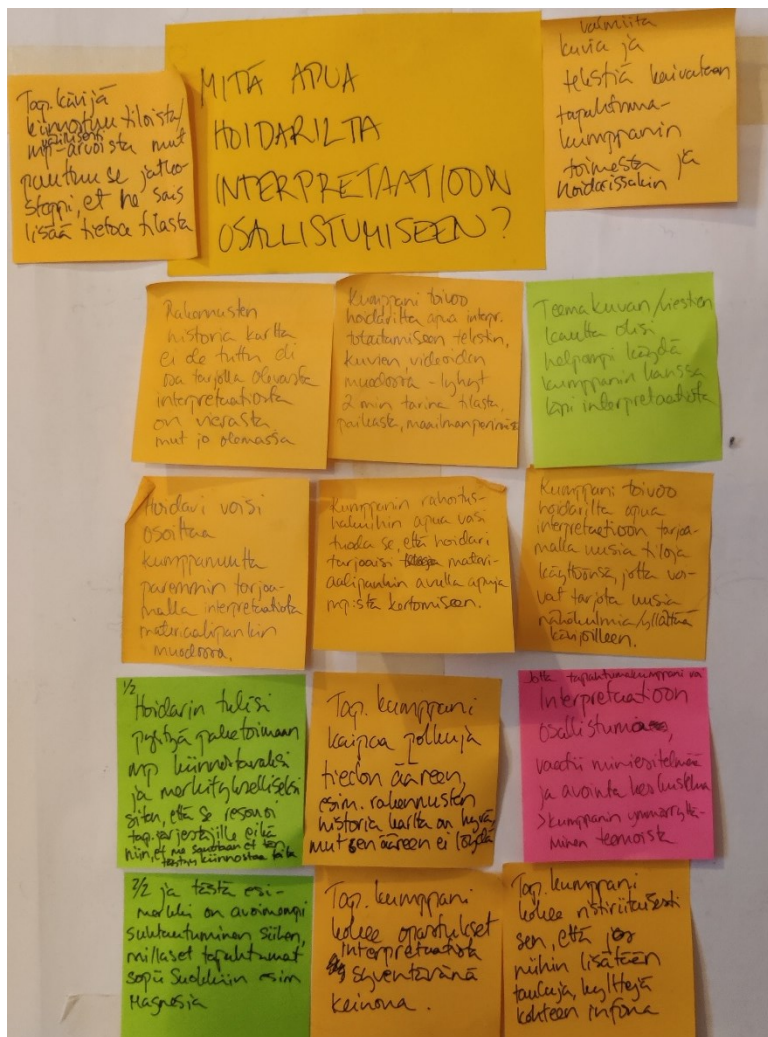 Tap. kävijä
kiinnostuu tiloista/
mp-arvoista mut
puuttuu se jatko
stoppi, et he sais
lisää tietoa tilasta
MITÄ APUA
HOIDARILTA
INTERPRETAATIOON
OSALLISTUMISEEN?
valmiita
kuvia ja
tekstiä kaivataan
tapahtuma-
kumppanin
toimesta ja
hoidarissakin
Rakennusten
historia kartta
ei ole tuttu eli
osa tarjolla olevasta
interpretaatiosta
on vierasta
mut jo olemassa
Kumppani toivoo
hoidarilta apua interpr.
toteutamiseen tekstin,
kuvien, videoiden
muodossa - lyhyt
2 min tarina tilasta,
paikasta, maailmanperinnöstä
Teemakuvan/viestien
kautta olisi
helpompi käydä
kumppanin kanssa
läpi interpretaatiota
Hoidari voisi
osoittaa
kumppanuutta
paremmin tarjoa-
malla interpretaatiota
materiaalipankin
muodossa.
Kumppanin rahoitus-
haluihin apua voisi
tuoda se, että hoidari
tarjoaisi materi-
aalipankin avulla apuja
mp:stä kertomiseen.
Kumppani toivoo
hoidarilta apua
interpretaatioon tarjoa-
malla uusia tiloja
käyttöönsä, jotta voi-
vat tarjota uusia
näkökulmia/yllättää
kävijöilleen.
1/2
Hoidarin tulisi
pystyä paketoimaan
mp kiinnostavaksi
ja merkitykselliseksi
siten, että se resonoi
tap.järjestäjille eikä
niin, et me sanotaan et
kiinnostaa
Tap. kumppani
kaipaa polkuja
tiedon ääreen,
esim. rakennusten
historia kartta on hyvä,
mut sen ääreen ei löydä
Jotta tapahtumakumppani
Interpretaatioon
osallistua,
vaatii
ja avointa keskustelua
>kumppanin ymmärryttä-
minen teemoista
2/2 ja tästä esi-
merkki on avoimempi
suhtautuminen siihen,
millaiset tapahtumat
sopii Suokkiin esim
Magnesia
Tap. kumppani
kokee opastukset
interpretaatiota
syventävänä
keinona.
Tap. kumppani
kokee ristiriitaisesti
sen, että
niihin lisätään
tauluja, kylttejä
kohteen infona